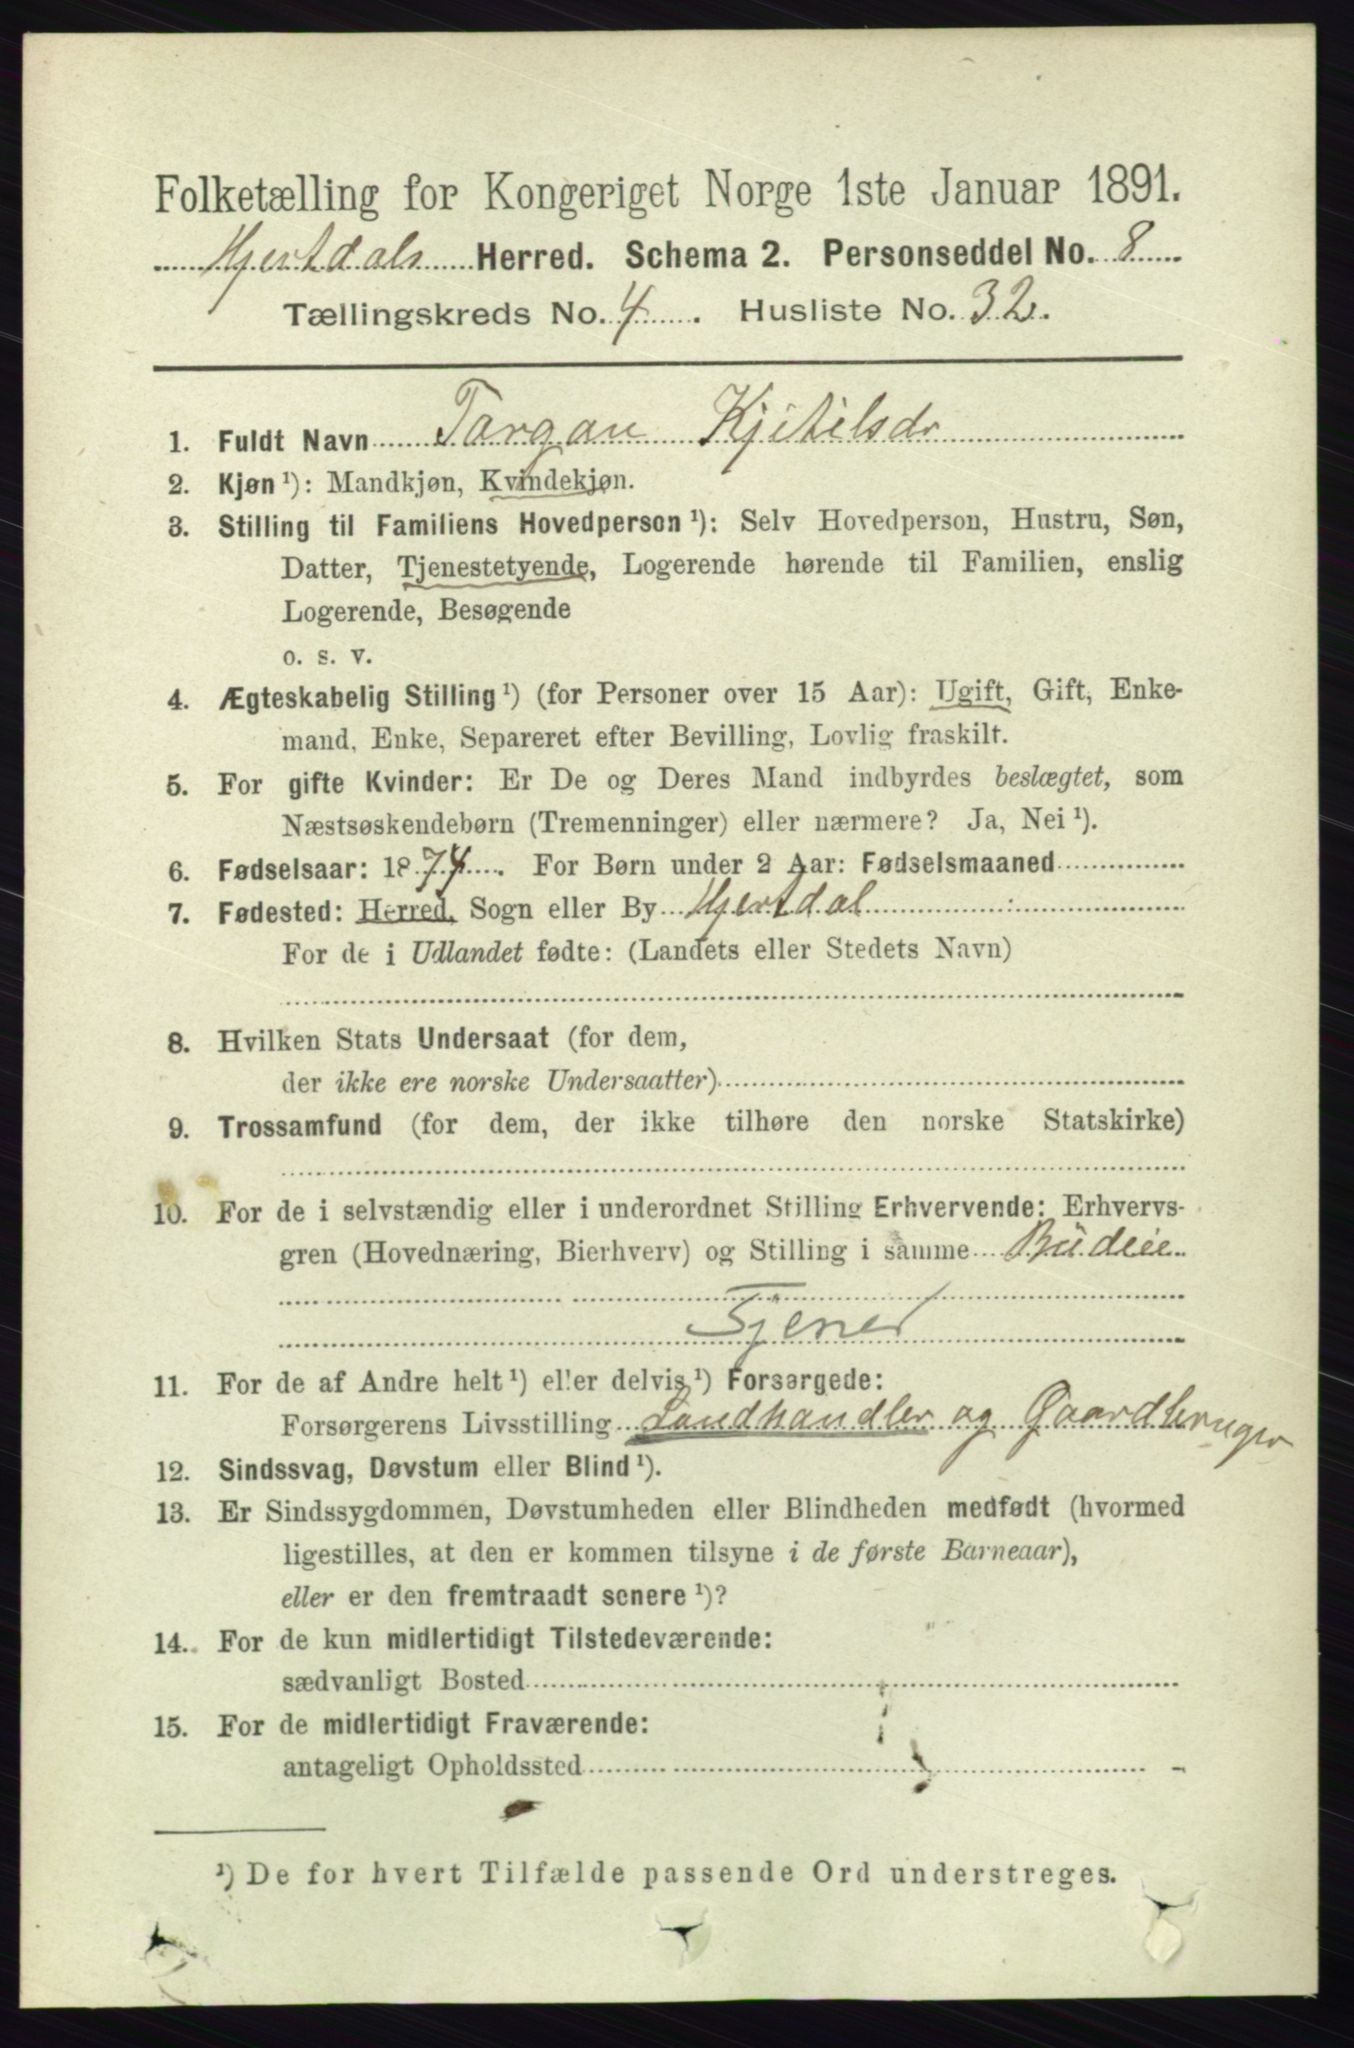 Folketælling for Kongeriget Norge 1ste Januar 1891.
Hjertdals Herred. Schema 2. Personseddel No. 8
Tællingskreds No. 4. Husliste No. 32.
1. Fuldt Navn Torgon Kjitilsdr
2. Kjøn ¹): Mandkjøn, Kvindekjøn.
3. Stilling til Familiens Hovedperson ¹): Selv Hovedperson, Hustru, Søn,
Datter, Tjenestetyende, Logerende hørende til Familien, enslig
Logerende, Besøgende
o. s. v.
4. Ægteskabelig Stilling ¹) (for Personer over 15 Aar): Ugift, Gift, Enke-
mand, Enke, Separeret efter Bevilling, Lovlig fraskilt.
5. For gifte Kvinder: Er De og Deres Mand indbyrdes beslægtet, som
Næstsøskendebørn (Tremenninger) eller nærmere? Ja, Nei ¹).
6. Fødselsaar: 1874. For Børn under 2 Aar: Fødselsmaaned
7. Fødested: Herred, Sogn eller By Hjertdal
For de i Udlandet fødte: (Landets eller Stedets Navn)
8. Hvilken Stats Undersaat (for dem,
der ikke ere norske Undersaatter)
9. Trossamfund (for dem, der ikke tilhøre den norske Statskirke)
10. For de i selvstændig eller i underordnet Stilling Erhvervende: Erhvervs-
gren (Hovednæring, Bierhverv) og Stilling i samme Budeie
Tjener
11. For de af Andre helt ¹) eller delvis ¹) Forsørgede:
Forsørgerens Livsstilling Landhandler og Gaardbruger
12. Sindssvag, Døvstum eller Blind ¹).
13. Er Sindssygdommen, Døvstumheden eller Blindheden medfødt (hvormed
ligestilles, at den er kommen tilsyne i de første Barneaar),
eller er den fremtraadt senere ¹)?
14. For de kun midlertidigt Tilstedeværende:
sædvanligt Bosted
15. For de midlertidigt Fraværende:
antageligt Opholdssted
¹) De for hvert Tilfælde passende Ord understreges.